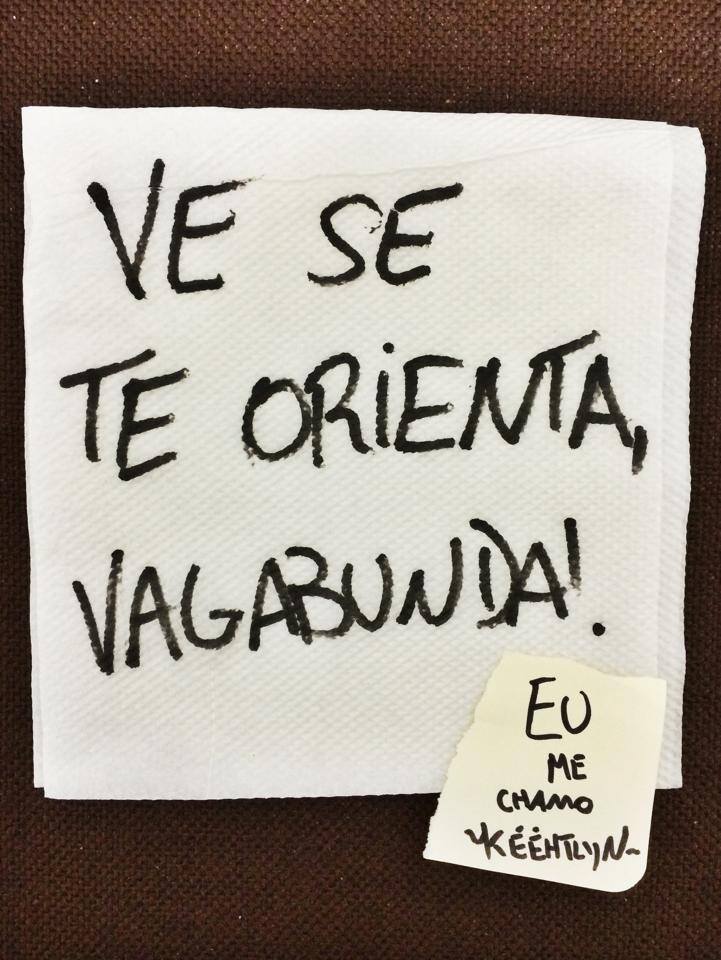 VE SE
TE ORiENTA,
VAGABUNDA!.
EU
ME
CHAMO
~KËËHTLYN~